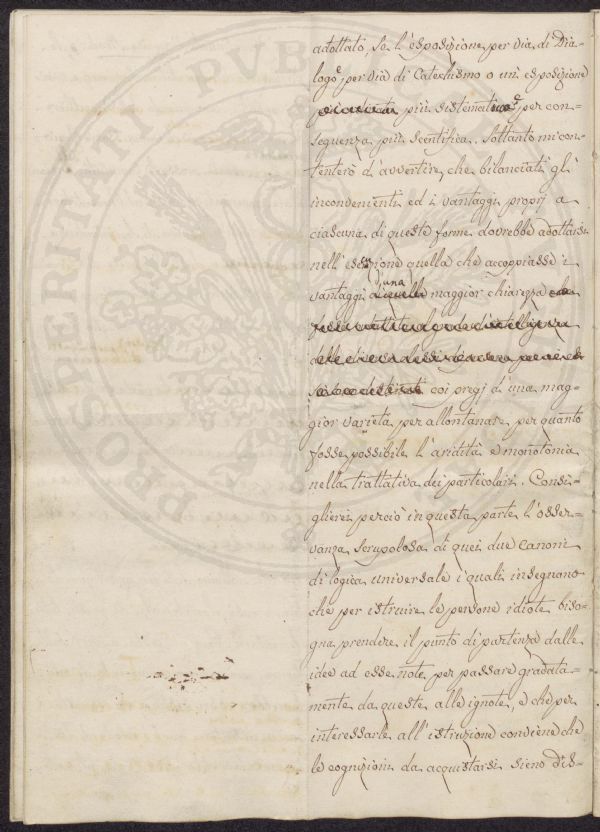 adottato, se l'esposizione per via di Dia-
logo, o per via di Catechismo o un'esposizione
più sistematica e per con=
seguenza più scentifica. Soltanto mi con-
tenterò d'avvertire, che bilanciati gl'
inconvenienti ed i vantaggi proprj a
ciascuna di queste forme dovrebbe adottarsi
nell'esecuzione quella che accoppiasse i
vantaggi d'una maggior chiarezza
coi pregj d'una mag-
gior varietà per allontanare, per quanto
fosse possibile l'aridità e monotonia
nella trattativa dei particolari. Consi-
glierei perciò in questa parte l'osser-
vanza scrupolosa di quei due canoni
di logica universale i quali insegnano
che per istruire le persone idiote biso-
gna prendere il punto di partenza dalle
idee ad esse note per passare gradata-
mente da queste alle ignote, e che per
interessarle all'istruzione conviene che
le cognizioni da acquistarsi sieno dis-
PROSPERITATI PUBLICAE